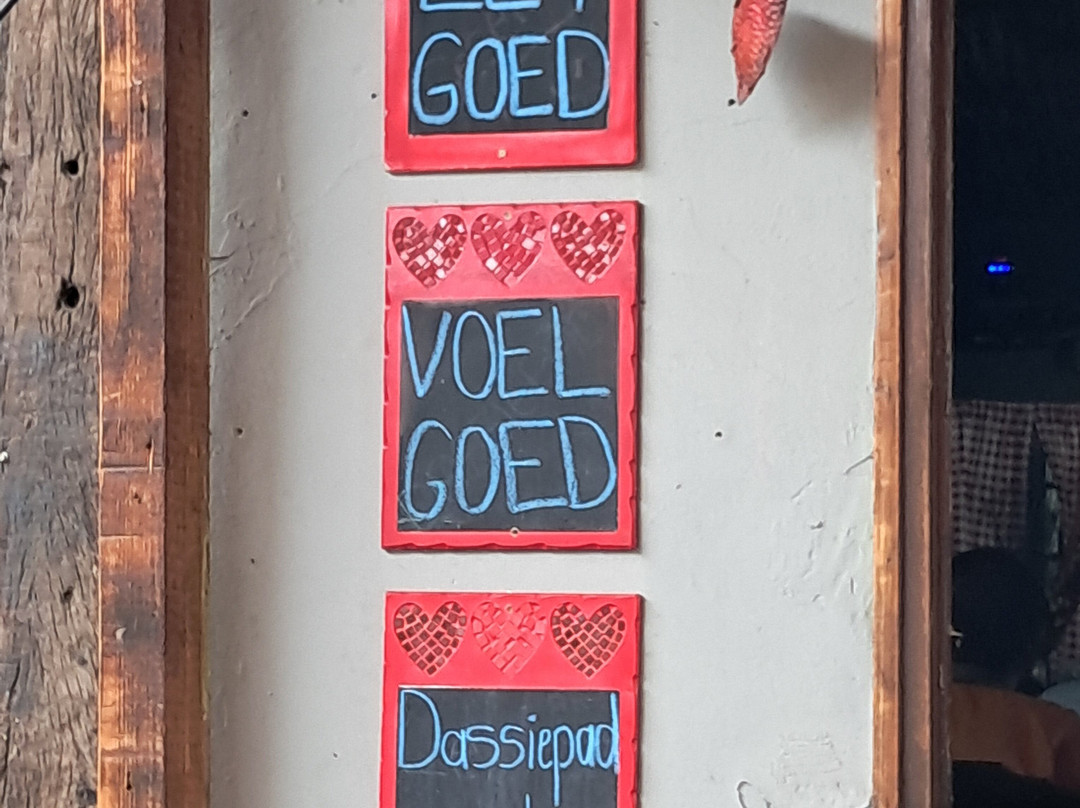 GOED
VOEL
GOED
Dassiepad